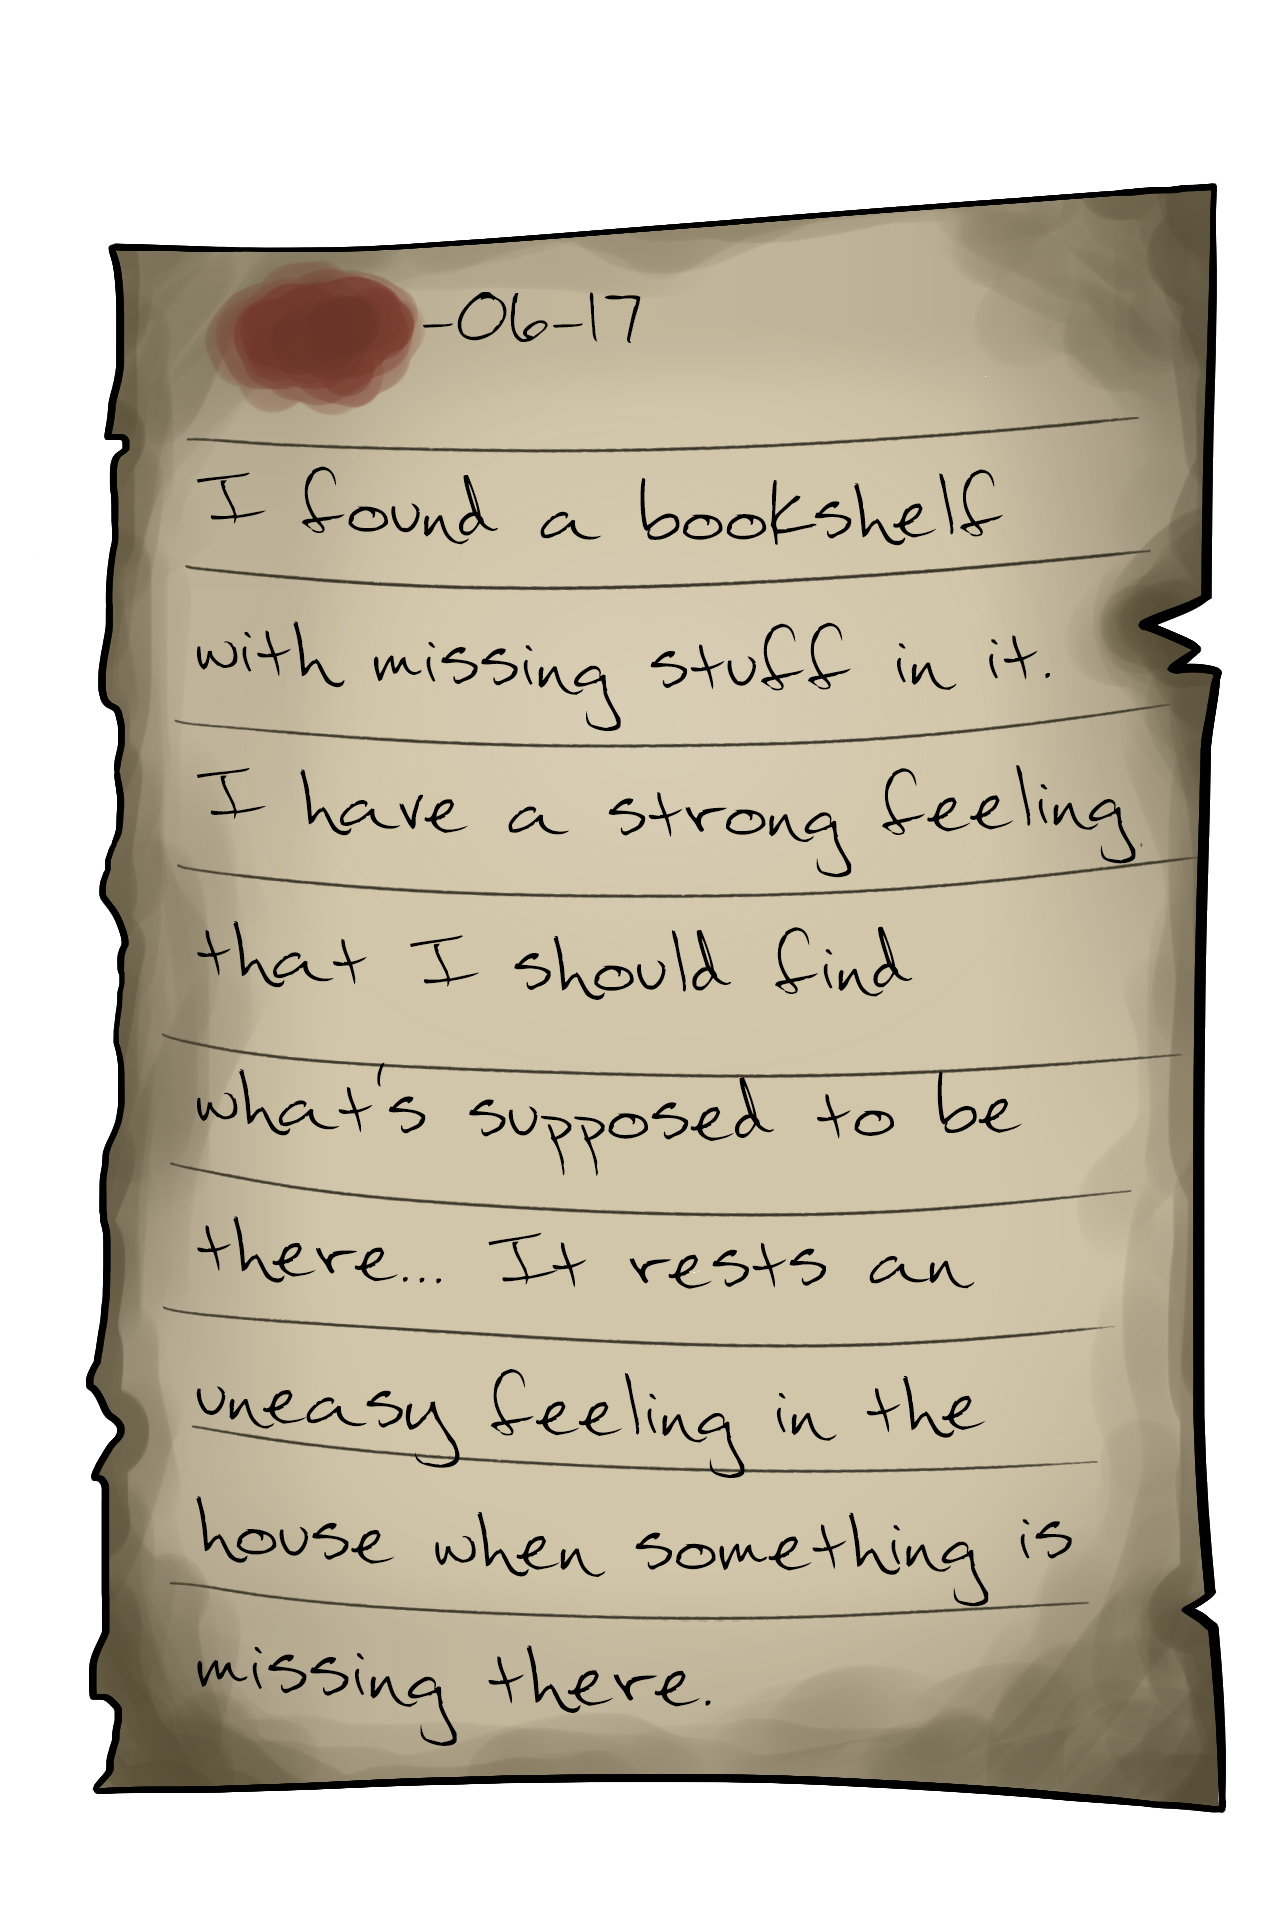 -06-17
I found a bookshelf
with missing stuff in it.
I have a strong feeling
that I should find
what's supposed to be
there... It rests an
uneasy feeling in the
house when something is
missing there.